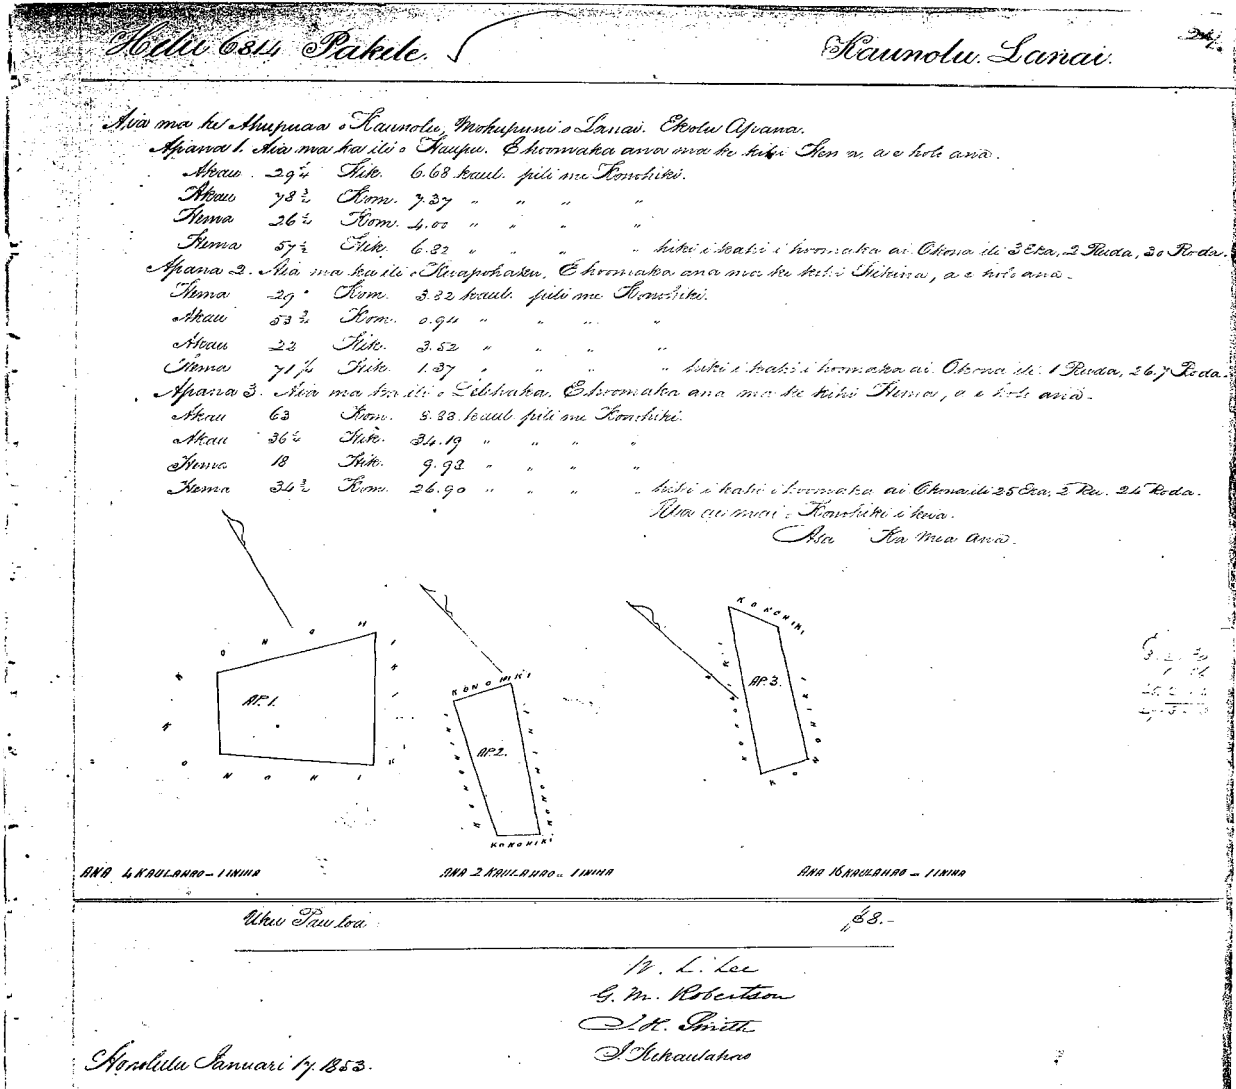 Helu 6814 Pakele. Kaunolu. Lanai.
Aia ma ke Ahupuaa o Kaunolu, Mokupuni o Lanai. Ekolu Apana.
Apana 1. Aia ma ka ili o Kaupu. E hoomaka ana ma ke kihi Hema, a e holo ana.
Akau 29¼ Hik. 6.68 kaul. pili me Konohiki.
Akau 78½ Kom. 7.37 " " " "
Hema 26½ Kom. 4.00 " " " "
Hema 57½ Hik. 6.82 " " " " hiki i kahi i hoomaka ai. Okona ili 3 Eka, 2 Ruda, 30 Roda.
Apana 2. Aia ma ka ili o Kuapohaku. E hoomaka ana ma ke kihi Hikina, a e holo ana.
Hema 29° Kom. 3.82 kaul. pili me Konohiki.
Akau 53¾ Kom. 0.94 " " " "
Akau 22 Hik. 3.52 " " " "
Hema 71¼ Hik. 1.37 " " " " hiki i kahi i hoomaka ai. Okona ili 1 Ruda, 26.7 Roda.
Apana 3. Aia ma ka ili o E hoomaka ana ma ke kihi Hema, a e holo ana.
Akau 63 Kom. 8.83 kaul. pili me Konohiki.
Akau 36½ Hik. 34.19 " " " "
Hema 18 Hik. 9.92 " " " "
Hema 34½ Kom. 26.90 " " " " hiki i kahi i hoomaka ai Okona ili 25 Eka, 2 Ru. 24 Roda.
Konohiki i keia.
Asa Ka mea ana.
KONOHIKI
KONOHIKI
AP. 1.
KONOHIKI
KONOHIKI
KONOHIKI
AP. 2.
KONOHIKI
KONOHIKI
KONOHIKI
KONOHIKI
AP. 3.
KONOHIKI
KON
ANA 4 KAULAHAO = 1 INIHA
ANA 2 KAULAHAO = 1 INIHA
ANA 16 KAULAHAO = 1 INIHA
Uku Pau loa $8.-
W. L. Lee
G. M. Robertson
J. H. Smith
J. Kekaulahao
Honolulu Januari 17. 1853.